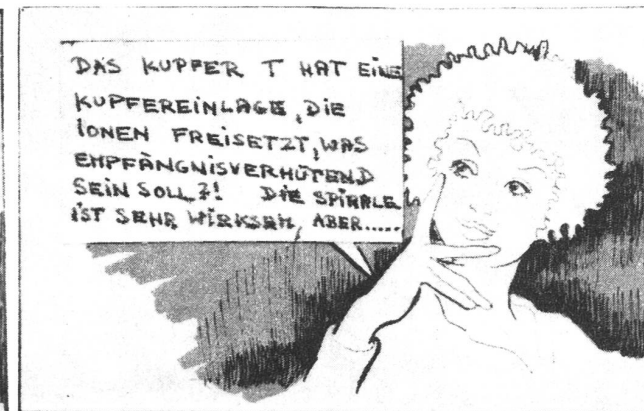 DAS KUPFER T HAT EINE
KUPFEREINLAGE, DIE
IONEN FREISETZT, WAS
EMPFÄNGNISVERHÜTEND
SEIN SOLL?! DIE SPIRALE
IST SEHR WIRKSAM, ABER.....